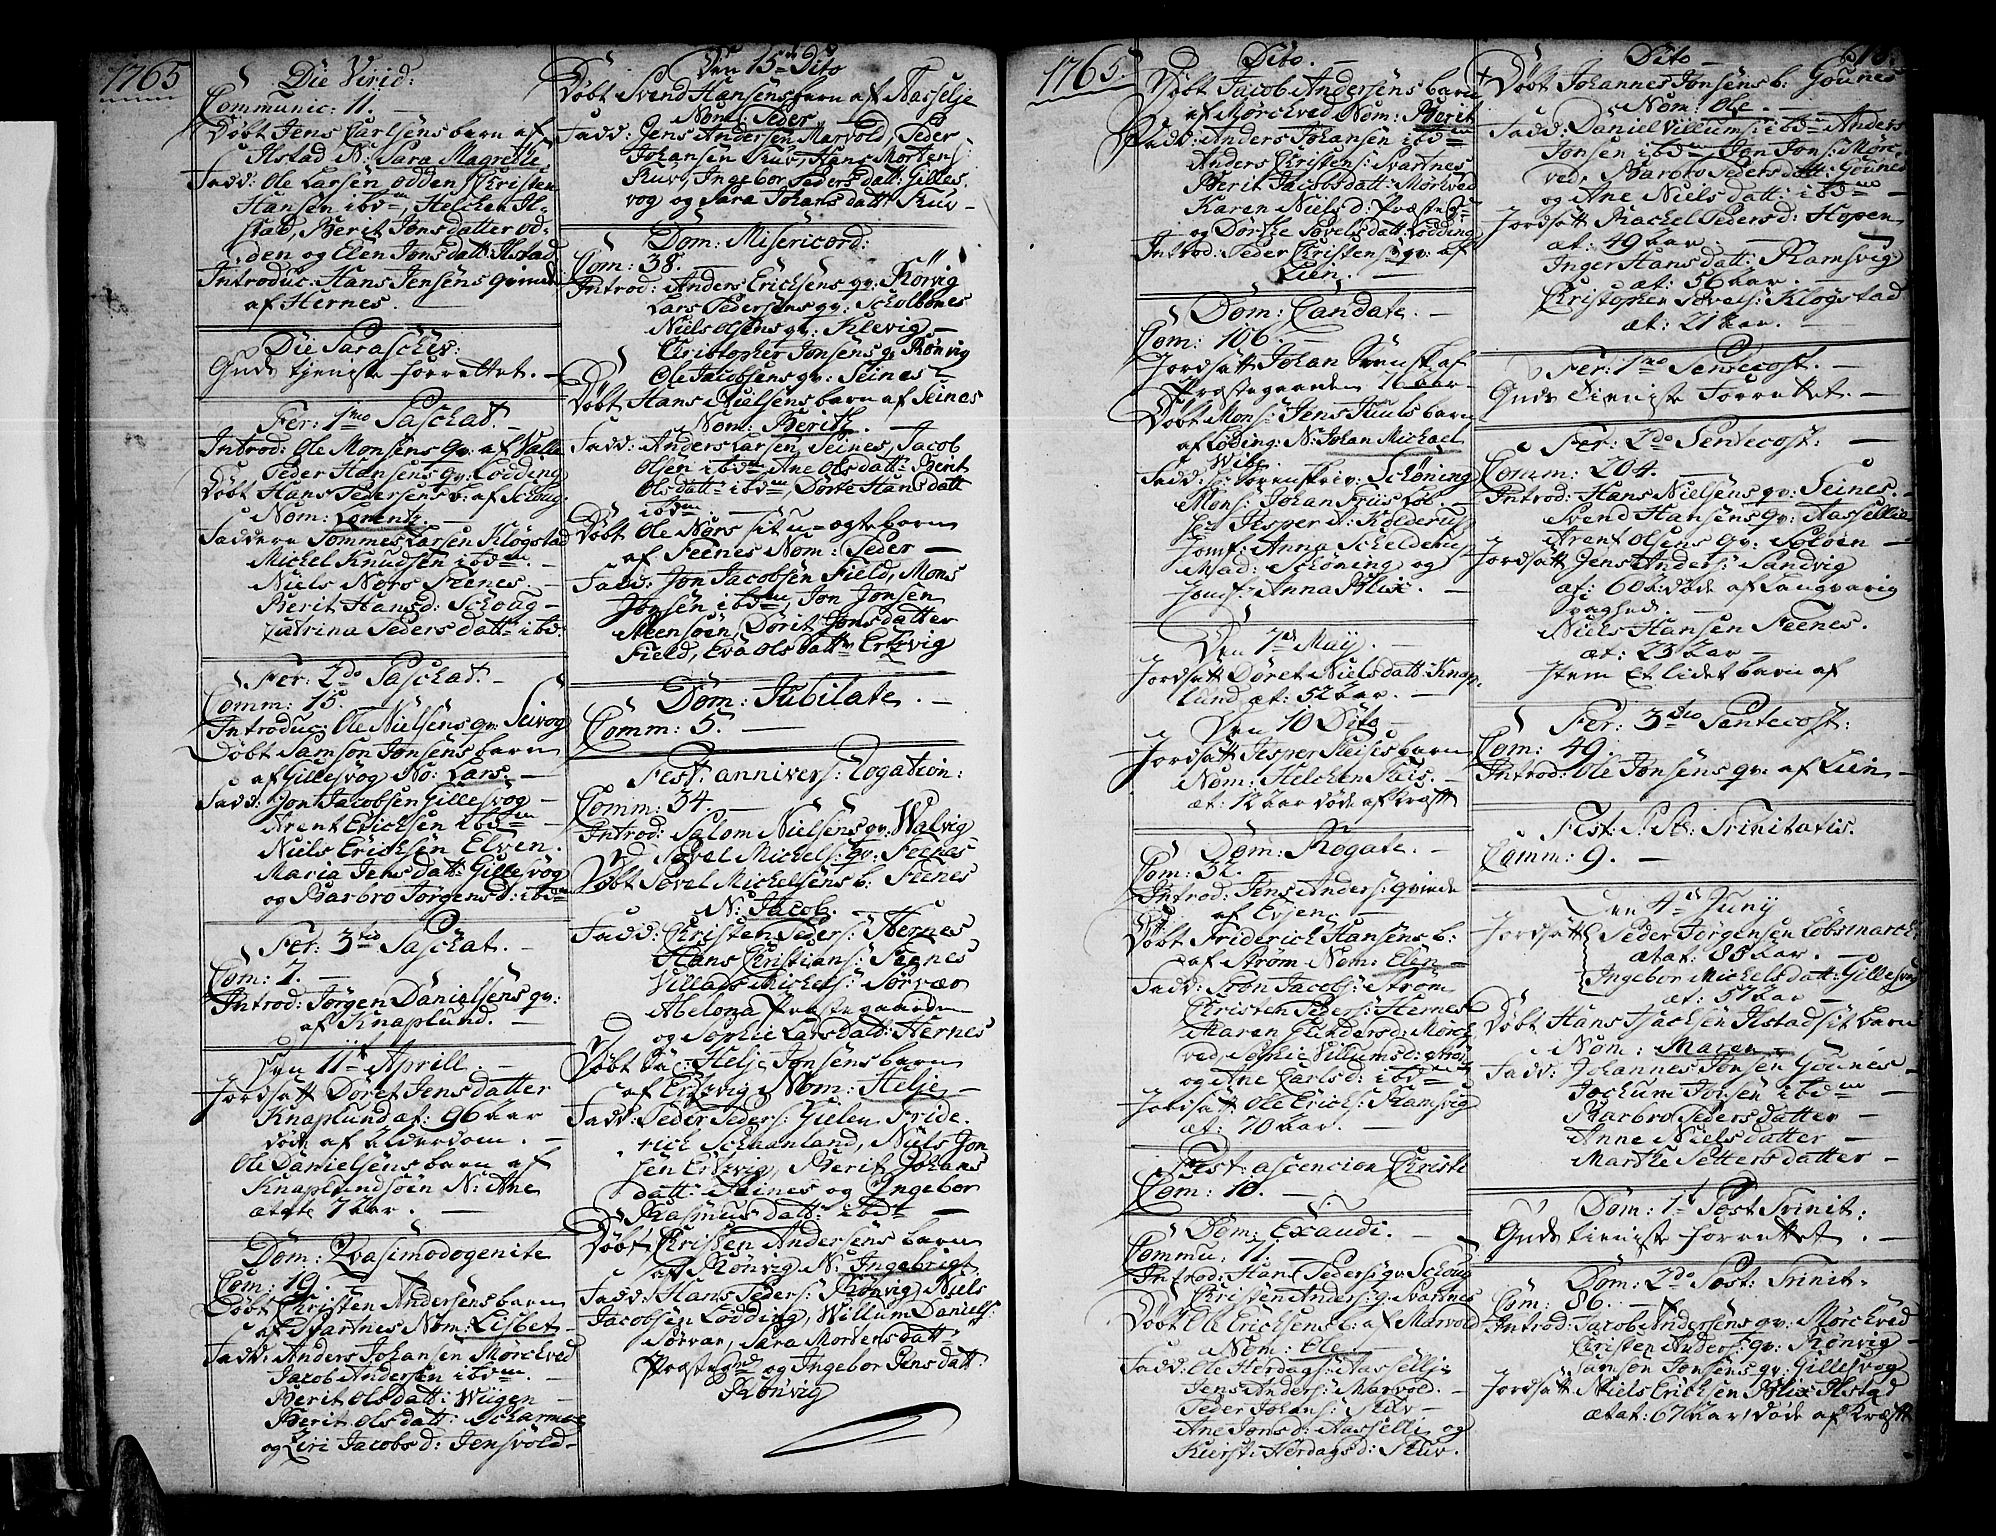 1765
Die Virid:
Communic: 11. —
Døbt Jens Carlsens barn af
Ilstad N: Sara Magrethe
Fadd: Ole Larsen Odden, Christen
Hansen ibd<sup>m</sup>, Helchen Il-
stad, Berit Jonsdatter Od-
den og Elen Jonsdatt: Ilstad
Introduc: Hans Jensens Qvinde
af Hernes.
Die Parascheu:
Guds tjeniste forrettet. —
Fer: 1<sup>mo</sup> Paschat. —
Introd: Ole Monsens Qv: af Valle
Peder Hansens qv: Lodding
Døbt Hans Pedersens b: af Schoug:
Nom: Lorentz. —
Faddere Tommes Larsen Kløgstad
Michel Knudsen ibd<sup>m</sup>. —
Niels Nors Feenes. —
Berit Hansd: Schoug —
Cathrina Peders datt: ibd:
Fer: 2<sup>do</sup> Paschat. —
Comm: 15. —
Introduc: Ole Nielsens qv: Seivog
Døbt Samson Jonsens barn
af Gillesvog No: Lars. —
Fadd: Jon Jacobsen Gillesvog —
Arent Erichsen ibd<sup>m</sup> —
Niels Erichsen Elven. —
Maria Jensdatt: Gillesvog
og Barbro Jørgensd: ibd<sup>m</sup>
Fer: 3<sup>tio</sup> Paschat. —
Com: 7. —
Introd: Jørgen Danielsens qv:
af Knaplund. —
Den 11<sup>te</sup> Aprill. —
Jordsatt Døret Jensdatter
Knaplund æt: 96 aar
døde af Alderdom. —
Ole Danielsens barn af
Knaplundsøen N: Ane
ætate 7 aar. —
Dom: Qvasimodogenite
Com: 19. —
Døbt Christen Andersens barn
af Svartnes Nom: Lisbet —
Fadd: Anders Johansen Morchved
Jacob Andersen ibd<sup>m</sup>. —
Berit Olsdatt: Wiigen —
Berit Olsdatt: Scharmoe
og Siri Jacobsd: Jensvold —
Den 15<sup>de</sup> Dito
Døbt Svend Hansens barn af Aasselje
Nom: Peder
Fadd: Jens Andersen Marvold, Peder
Johansen Skav, Hans Mortens:
Skuv, Ingebor Peders datt: Gilles-
vog og Sara Johans datt: Skuv —
Dom: Misericord:
Com: 38. —
Introd: Anders Erichsens qv: Rørvig
Lars Pedersens qv: Scholbones
Niels Olsens qv: Klevig —
Christopher Jonsens q: Rønvig
Ole Jacobsens qv: Seines —
Døbt Hans Nielsens barn af Seines
Nom: Berith. —
Fadd: Anders Larsen Seines, Jacob
Olsen ibd<sup>m</sup> Ane Olsdatt: Berit
Olsdatt: ibd<sup>m</sup>, Dorte Hans datt
ibd<sup>m</sup>. —
Døbt Ole Nors sit u-ægte barn
af Feenes Nom: Peder —
Fadd: Jon Jacobsen Field, Mons
Jonsen ibd<sup>m</sup>, Jon Jonsen
Steensøen, Dorit Jonsdatter
Field, Eva Ols datt: Ertzvig
Dom: Jubilate. —
Comm: 5. —
Fest: annivers: Rogation:
Comm: 34. —
Introd: Salom Nielsens qv: Walvig
Povel Michels: qv: Feenes
Døbt Povel Michelsens b: Feenes
N: Jacob. —
Fadd: Christen Peders: Hernes
Hans Christians: Feenes
Villads Michels: Sørvær
Abelona Præstegaarden
og Sophie Larsdatt: Hernes
Døbt Sa: Helje Jonsens barn
af Ertzvig Nom: Helje —
Fadd: Peder Peders: Gielen Fride-
rich Schaanland, Niels Jon-
sen Ertzvig, Berit Johans
datt: Steines og Ingebor
Rasmus datt: ibd<sup>m</sup> —
Døbt Christen Andersens barn
af Rønvig N: Ingebrigt.
Fadd: Hans Peders: Rønvig Niels
Jacobsen Lodding, Willum Daniels:
Sørvær, Sara Mortens datt:
Præsteg<sup>rd</sup> og Ingebor Jens datt:
Rønvig
1765.
Dito. —
Døbt Jacob Andersens barn
af Morchved Nom: Berit
Fadd: Anders Johansen ibd<sup>m</sup>
Anders Christens: Svartnes
Berit Jacobsdatt: Morkved
Karen Niels d: Præsteg:
og Dorthe Povelsdatt: Lodding
Introd: Peder Christens: qv: af
Lien. —
Dom: Candate. —
Com: 106. —
Jordsatt Johan Svensk af
Præstegaarden 76 aar —
Døbt Mons: Jens Juuls barn
af Loding: N: Johan Michael
Wibe
Fadd: Hr Sorenskriv: Schøning
Mons: Johan Friis
Hr Jesper A: Kolderup
Jomf: Anna Schelderup
Mad: Schøning og
Jomf: Anna Blix. —
Den 7<sup>de</sup> May. —
Jordsatt Døret Nielsdatt: Knap-
lund æt: 52 aar. —
Den 10 Dito —
Jordsatt Jesper Fleises barn
Nom: Helchen Fleis. —
æt: 12 aar døde af bræst
Dom: Rogate. —
Com: 32. —
Introd: Jens Anders: qvinde
af Evjen. —
Døbt Friderich Hansens b:
af Strøm Nom: Elen —
Fadd: Tron Jacobs: Strøm
Christen Peders: Hernes
Maren Flenders d: Morch-
ved, Sophie Villums d: Strøm
og Ane Carlsd: ibd<sup>m</sup> —
Jordsatt Ole Erichs: Ramsvig
æt: 70 aar. —
Fest: ascencion Christi
Com: 10. —
Dom: Exaudi. —
Commu: 11. —
Introd: Hans Peders: qv: Schoug
Christen Anders: q: Svartnes
Døbt Ole Erichsens b: af Marvold
Nom: Ole. —
Fadd: Ole Herdags: Aassellje
Jens Anders: Marvold. —
Peder Johans: Skuv —
Ane Jonsd: Aasselli og
Kierst: Herdagsd: Skuv.
Dito —
Døbt Johannes Jonsens b: Gounes
Nom: Ole. —
Fadd: Daniel Villums: ibd<sup>m</sup> Anders
Jonsen ibd<sup>m</sup> Jon Jons: Morc-
ved, Barbro Peders datt: Gounes
og Ane Niels datt: ibd<sup>m</sup> —
Jordsatt Rachel Peders d: Hopen
æt: 49 aar —
Inger Hans datt: Ramsvig
æt: 56 aar. —
Christopher Povels: Klogstad
æt: 21 aar. —
Fer: 1<sup>mo</sup> Pentecost. —
Guds Tieniste Forrettet. —
Fer: 2<sup>do</sup> Pentecost: —
Comm: 204. —
Introd: Hans Nielsens qv: Seines. —
Svend Hansens Qv: Aassellia
Arent Olsens qv: Soløen —
Jordsatt Jens Anders: Sandvig
æt: 60 a: døde af Langvarig
svaghed. —
Niels Hansen Feenes.
æt: 23 aar —
Item Et lidet barn af
Fer: 3<sup>tio</sup> Pentecost:
Com: 49. —
Introd: Ole Jonsens qv: af Lien —
Fest: S. St: Trinitatis.
Comm: 9. —
Den 4<sup>de</sup> Juny
Jordsatt Peder Jørgensen Løbsmarch:
ætat: 85 aar. —
Ingebor Michelsdatt: Gillesvog
æt: 57 aar —
Døbt Hans Isachsen Ilstad sit barn
Nom: Maren —
Fadd: Johannes Jonsen Gounes —
Jochum Jonsen ibd<sup>m</sup>
Barbro Peders datter —
Anne Niels datter —
Marthe Petters datter —
Dom: 1<sup>t</sup> Post Trinit:
Guds tieniste forrettet. —
Dom: 2<sup>do</sup> Post: Trinit.
Com: 86. —
Introd: Jacob Andersens qv: Mørchved
Christen Anders: qv: Rønvig —
Samson Jonsens qv: Gillesvog
Jordsatt Niels Erichsen Blix Ilstad
ætat: 67 aar, døde af bræst